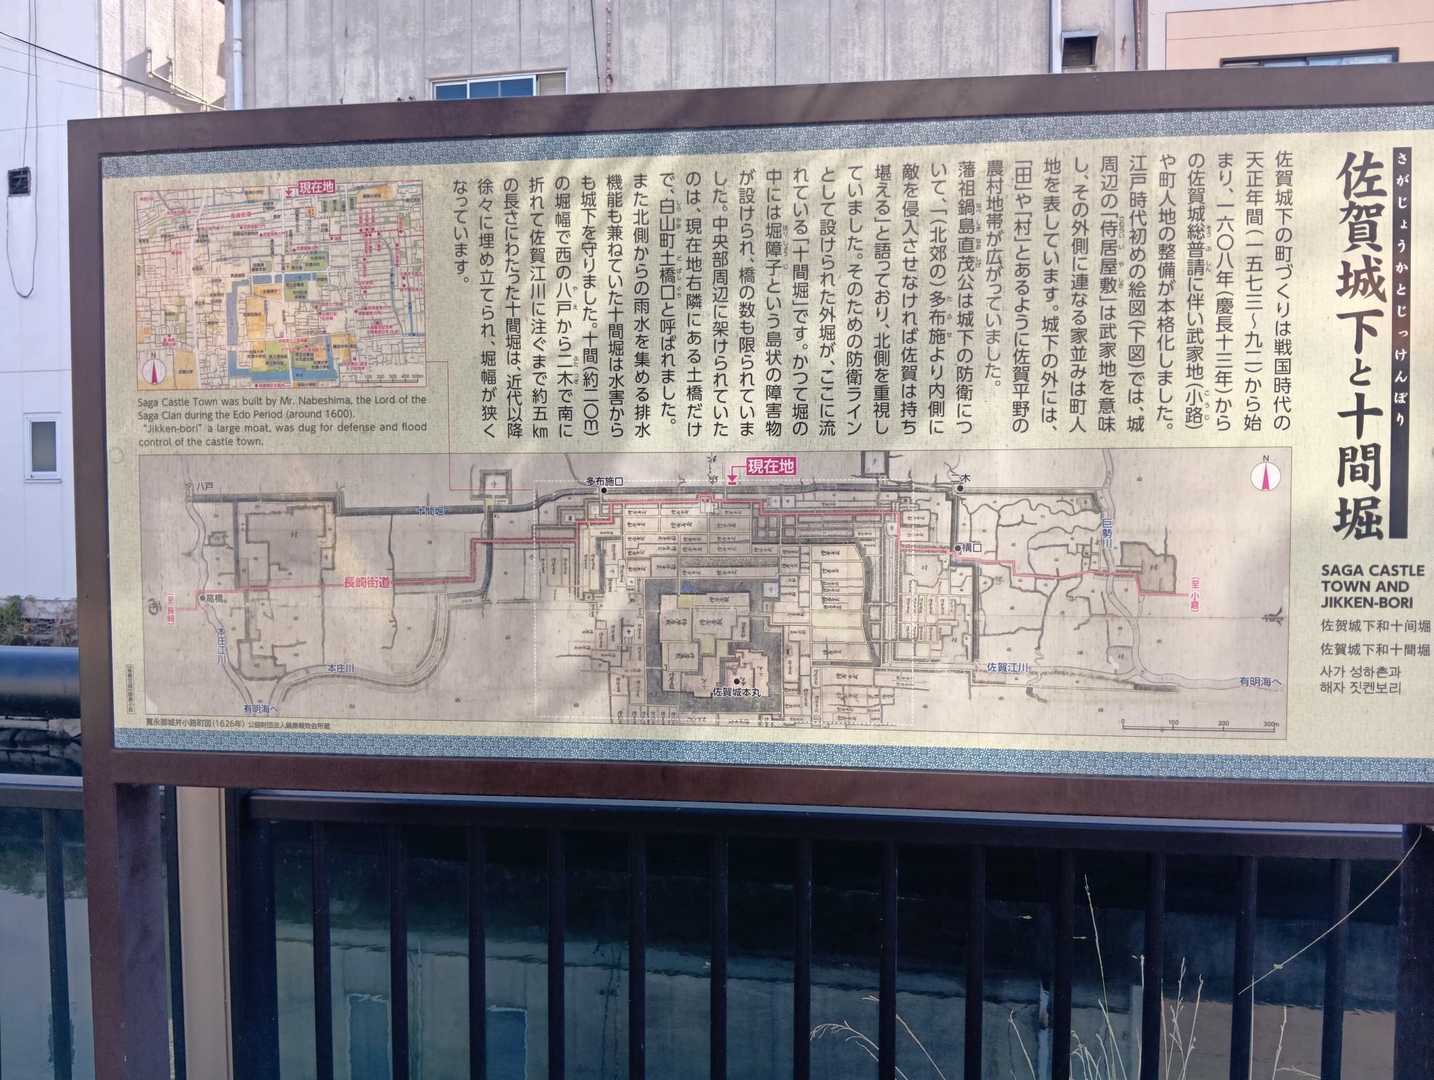 さがじょうかとじっけんぼり
佐賀城下と十間堀
SAGA CASTLE
TOWN AND
JIKKEN-BORI
佐贺城下和十间堀
佐賀城下和十間堀
사가 성하촌과
해자 짓켄보리
佐賀城下の町づくりは戦国時代の
天正年間(一五七三~九二)から始
まり、一六〇八年(慶長十三年)から
の佐賀城総普請に伴い武家地(小路)
や町人地の整備が本格化しました。
江戸時代初めの絵図(下図)では、城
周辺の「侍居屋敷」は武家地を意味
し、その外側に連なる家並みは町人
地を表しています。城下の外には、
「田」や「村」とあるように佐賀平野の
農村地帯が広がっていました。
藩祖鍋島直茂公は城下の防衛につ
いて、「(北郊の)多布施より内側に
敵を侵入させなければ佐賀は持ち
堪える」と語っており、北側を重視し
ていました。そのための防衛ライン
として設けられた外堀が、ここに流
れている「十間堀」です。かつて堀の
中には堀障子という島状の障害物
が設けられ、橋の数も限られていま
した。中央部周辺に架けられていた
のは、現在地右隣にある土橋だけ
で、白山町土橋口と呼ばれました。
また北側からの雨水を集める排水
機能も兼ねていた十間堀は水害から
も城下を守りました。十間(約二〇m)
の堀幅で西の八戸から二木で南に
折れて佐賀江川に注ぐまで約五km
の長さにわたった十間堀は、近代以降
徐々に埋め立てられ、堀幅が狭く
なっています。
現在地
N
Saga Castle Town was built by Mr. Nabeshima, the Lord of the
Saga Clan during the Edo Period (around 1600).
"Jikken-bori" a large moat, was dug for defense and flood
control of the castle town.
現在地
N
八戸
多布施口
二木
十間堀
巨勢川
構口
長崎街道
高橋
(至 長崎)
(至 小倉)
本庄江川
本庄川
佐賀城本丸
佐賀江川
有明海へ
有明海へ
寛永御城并小路町図(1626年) 公益財団法人鍋島報效会所蔵
0 100 200 300m